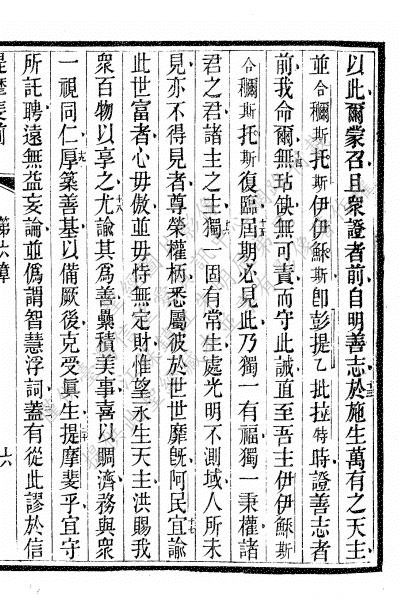 以此爾蒙召且衆證者前自明善志於施生萬有之天主
並合穪斯托斯伊伊穌斯卽彭提乙批拉特時證善志者
前我命爾無玷缺無可責而守此誡直至吾主伊伊穌斯
合穪斯托斯復臨屆期必見此乃獨一有福獨一秉權諸
君之君諸主之主獨一固有常生處光明不測域人所未
見亦不得見者尊榮權柄悉屬彼於世世靡旣阿民宜諭
此世富者心毋傲並毋恃無定財惟望永生天主洪賜我
衆百物以享之尤諭其爲善纍積美事喜以賙濟務與衆
一視同仁厚築善基以備厥後克受眞生提摩斐乎宜守
所託聘遠無益妄論並僞謂智慧浮詞蓋有從此謬於信
提摩斐前 第六章 六